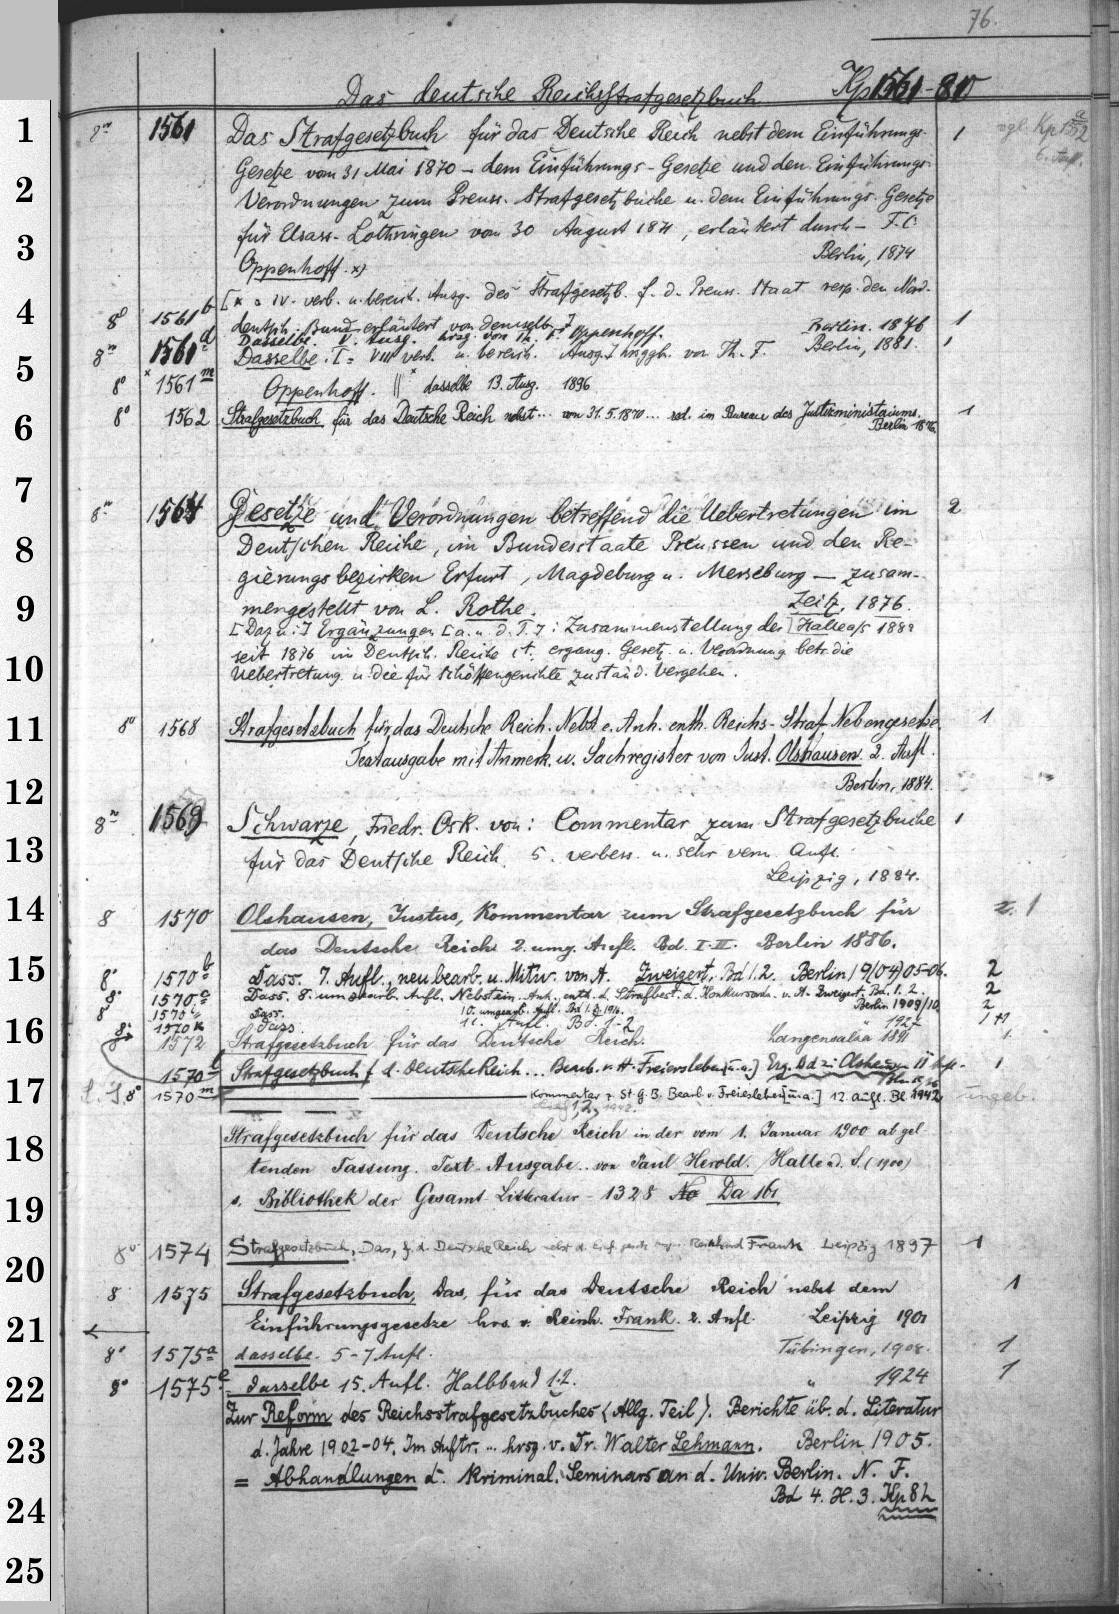 76.
Das deutsche Reichsstrafgesetzbuch Kp 1561-80
1 8º 1561 Das Strafgesetzbuch für das Deutsche Reich nebst dem Einführungs- 1 vgl. Kp
Gesetze vom 31 Mai 1870 – dem Einführungs-Gesetze und den Einführungs-
2 Verordnungen zum Preuss. Strafgesetzbuche u. dem Einführungs-Gesetze
3 für Elsass-Lothringen vom 30 August 1871, erläutert durch – F. C.
Oppenhoff. x) Berlin, 1874
4 [x = IV. verb. u. bereich. Ausg. des Strafgesetzb. f. d. Preuss. Staat resp. den Nord-
8º 1561 b deutsch. Bund erläutert von demselb.]
Dasselbe. V. Ausg. hrsg. von Th. F. Oppenhoff. Berlin. 1876 1
5 8º 1561 d Dasselbe. [= VIII verb. u. bereich. Ausg.] hrsggb. von Th. F. Berlin, 1881. 1
8º x 1561 m Oppenhoff. || x dasselbe 13. Ausg. 1896
6 8º 1562 Strafgesetzbuch für das Deutsche Reich nebst... von 31.5.1870... red. im Bureau des Justizministeriums. 1
Berlin 1876.
7 8º 1564 Gesetze und Verordnungen betreffend die Uebertretungen im 2
8 Deutschen Reiche, im Bundesstaate Preussen und den Re-
gierungsbezirken Erfurt, Magdeburg u. Merseburg – zusam-
9 mengestellt von L. Rothe. Zeitz, 1876.
[Dazu:] Ergänzungen [a. u. d. T.]: Zusammenstellung der Halle a/S
10 seit 1876 im Deutsch. Reiche ergang. Gesetz. u. Verordnung betr. die
Uebertretung. u. die für Schöffengerichte zuständ. Vergehen.
11 8º 1568 Strafgesetzbuch für das Deutsche Reich. Nebst e. Anh. enth. Reichs-Straf-Nebengesetze. 1
Textausgabe mit Anmerk. u. Sachregister von Just. Olshausen. 2. Aufl.
12 Berlin, 1884.
8º 1569 Schwarze, Friedr. Osk. von: Commentar zum Strafgesetzbuche 1
13 für das Deutsche Reich. 5. verbess. u. sehr verm. Aufl.
Leipzig, 1884.
14 8 1570 Olshausen, Justus, Kommentar zum Strafgesetzbuch für
das Deutsche Reich 2. umg. Aufl. Bd. I-II. Berlin 1886.
15 8º 1570 b Dass. 7. Aufl., neubearb. u. Mitw. von A. Zweigert. Bd 1.2. Berlin (9/04) 05-06. 2
8º 1570 c Dass. 8. umgearb. Aufl. Nebst ein. Anh., enth. d. Strafbest. d. Konkursordn. v. A. Zweigert. Bd. 1. 2. 2
8º 1570 Dass. 10. umgearb. Aufl. Berlin 1909/10 2
16 8º 1570 k Dass. 11. Aufl. Bd. 1-2 " 1927 1+1
1572 Strafgesetzbuch für das Deutsche Reich. Langensalza 1891 1.
1570 l Strafgesetzbuch f. d. Deutsche Reich... Bearb. v. H. Freiersleben [u. a.] Erg. Bd zu Olshausen 11 Aufl. 1
17 8º 1570 m Kommentar z. St G. B. Bearb. v. Freiesleben [u. a.] 12. Aufl. Bl 1942 ungeb.
18 Strafgesetzbuch für das Deutsche Reich in der vom 1. Januar 1900 ab gel-
tenden Fassung. Text-Ausgabe.. von Paul Herold. Halle a. d. S. (1900)
19 s. Bibliothek der Gesamt-Litteratur – 1328 No Da 161
20 8º 1574 Strafgesetzbuch, Das, f. d. Deutsche Reich nebst d. Reinhard Frank Leipzig 1897 1
8 1575 Strafgesetzbuch, Das, für das Deutsche Reich nebst dem 1
21 Einführungsgesetze hrs. v. Reinh. Frank. 2. Aufl. Leipzig 1901
8º 1575 a dasselbe. 5-7 Aufl. Tübingen, 1908. 1
22 8º 1575 e dasselbe 15. Aufl. Halbband 1.2. " 1924 1
Zur Reform des Reichsstrafgesetzbuches (Allg. Teil). Berichte üb. d. Literatur
23 d. Jahre 1902-04. Im Auftr. ... hrsg. v. Dr. Walter Lehmann. Berlin 1905.
= Abhandlungen d. kriminal. Seminars an d. Univ. Berlin. N. F.
24 Bd 4. H. 3. Kp 82
25